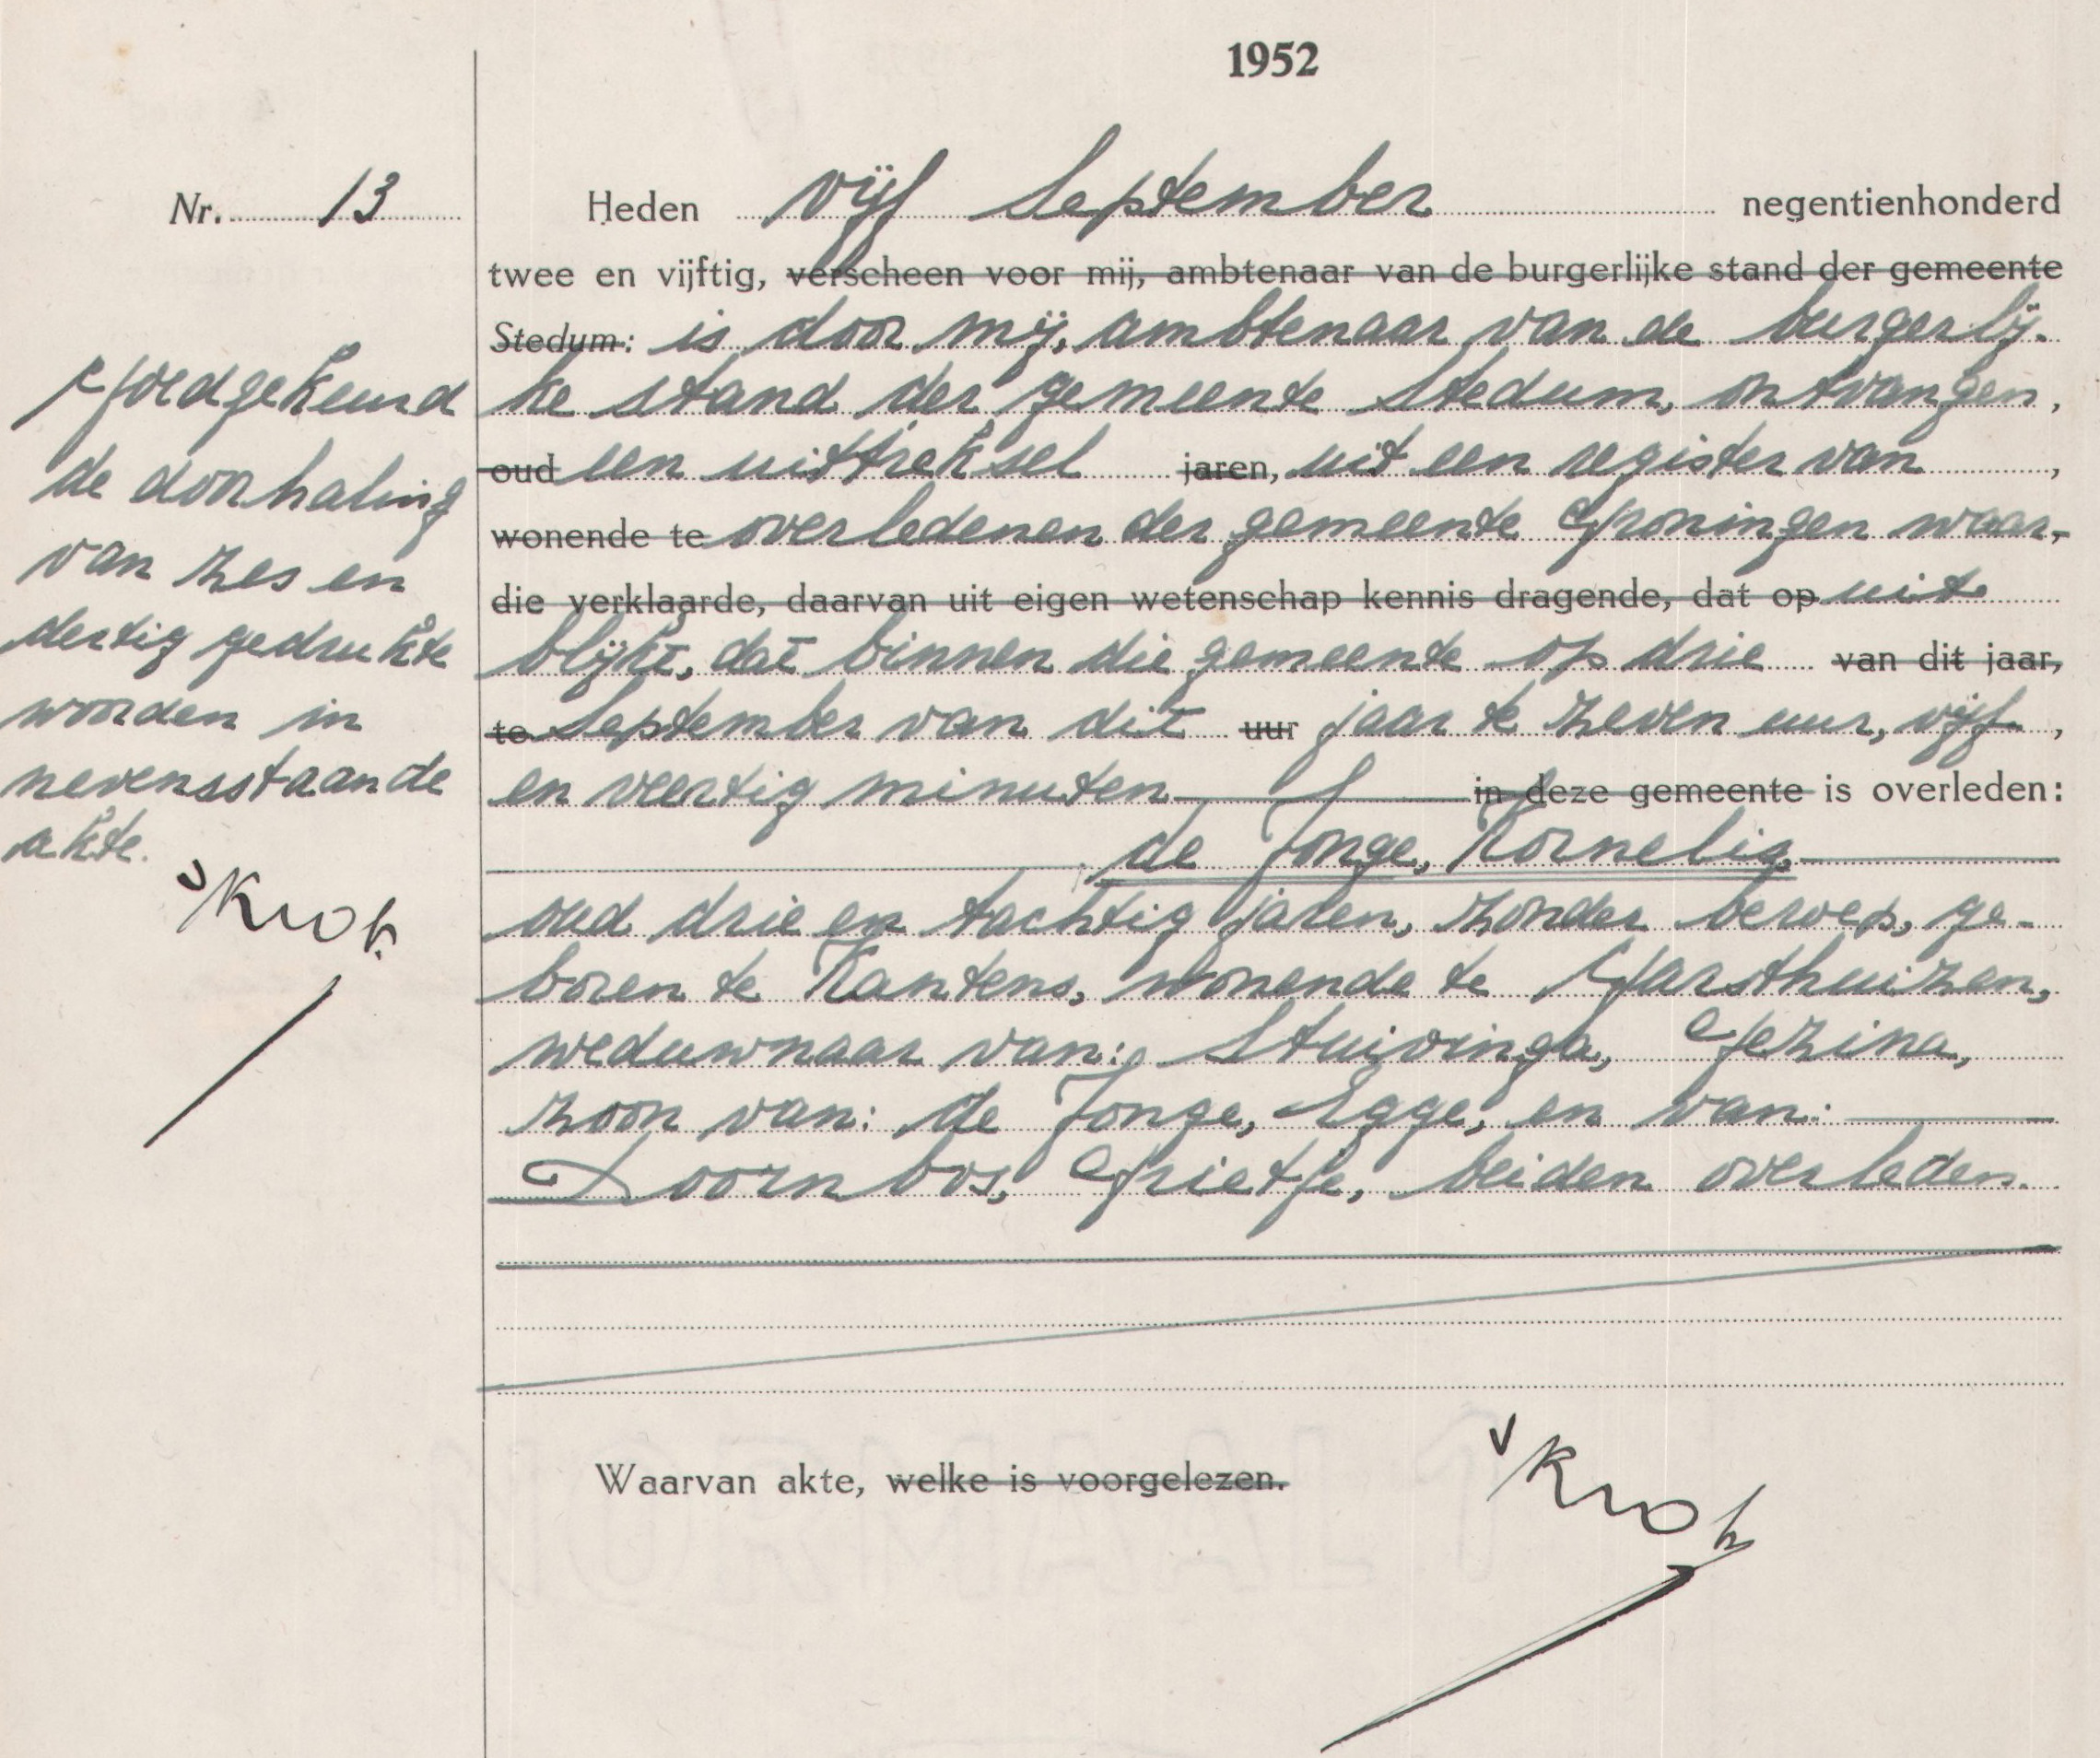 1952
Nr. 13
Heden vijf September negentienhonderd
twee en vijftig, verscheen voor mij, ambtenaar van de burgerlijke stand der gemeente
Stedum: is door mij, ambtenaar van de burgerlij-
ke stand der gemeente Stedum, ontvangen,
oud een uittreksel jaren, uit een register van ,
wonende te overledenen der gemeente Groningen waar-
die verklaarde, daarvan uit eigen wetenschap kennis dragende, dat op uit
blijkt, dat binnen die gemeente op drie van dit jaar,
te September van dit uur jaar te zeven uur, vijf ,
en veertig minuten in deze gemeente is overleden:
de Jonge, Kornelis
oud drie en tachtig jaren, zonder beroep, ge-
boren te Kantens, wonende te Garsthuizen,
weduwnaar van: Stuivinga, Gezina,
zoon van: de Jonge, Egge, en van:
Doornbos, Grietje, beiden overleden.
Waarvan akte, welke is voorgelezen.
Goedgekeurd
de doorhaling
van zes en
dertig gedrukte
woorden in
nevensstaande
akte.